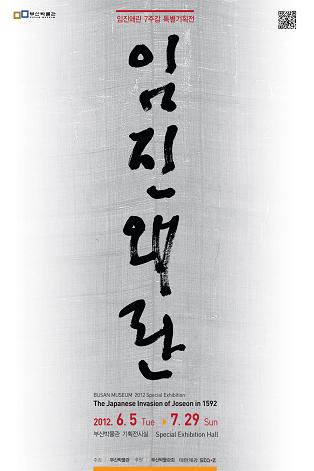 부산박물관
BUSAN MUSEUM
임진왜란 7주갑 특별기획전
임진왜란
BUSAN MUSEUM 2012 Special Exhibition
The Japanese Invasion of Joseon in 1592
2012. 6. 5 Tue 7. 29 Sun
부산박물관 기획전시실 Special Exhibition Hall
주최 부산박물관 후원 부산박물관회